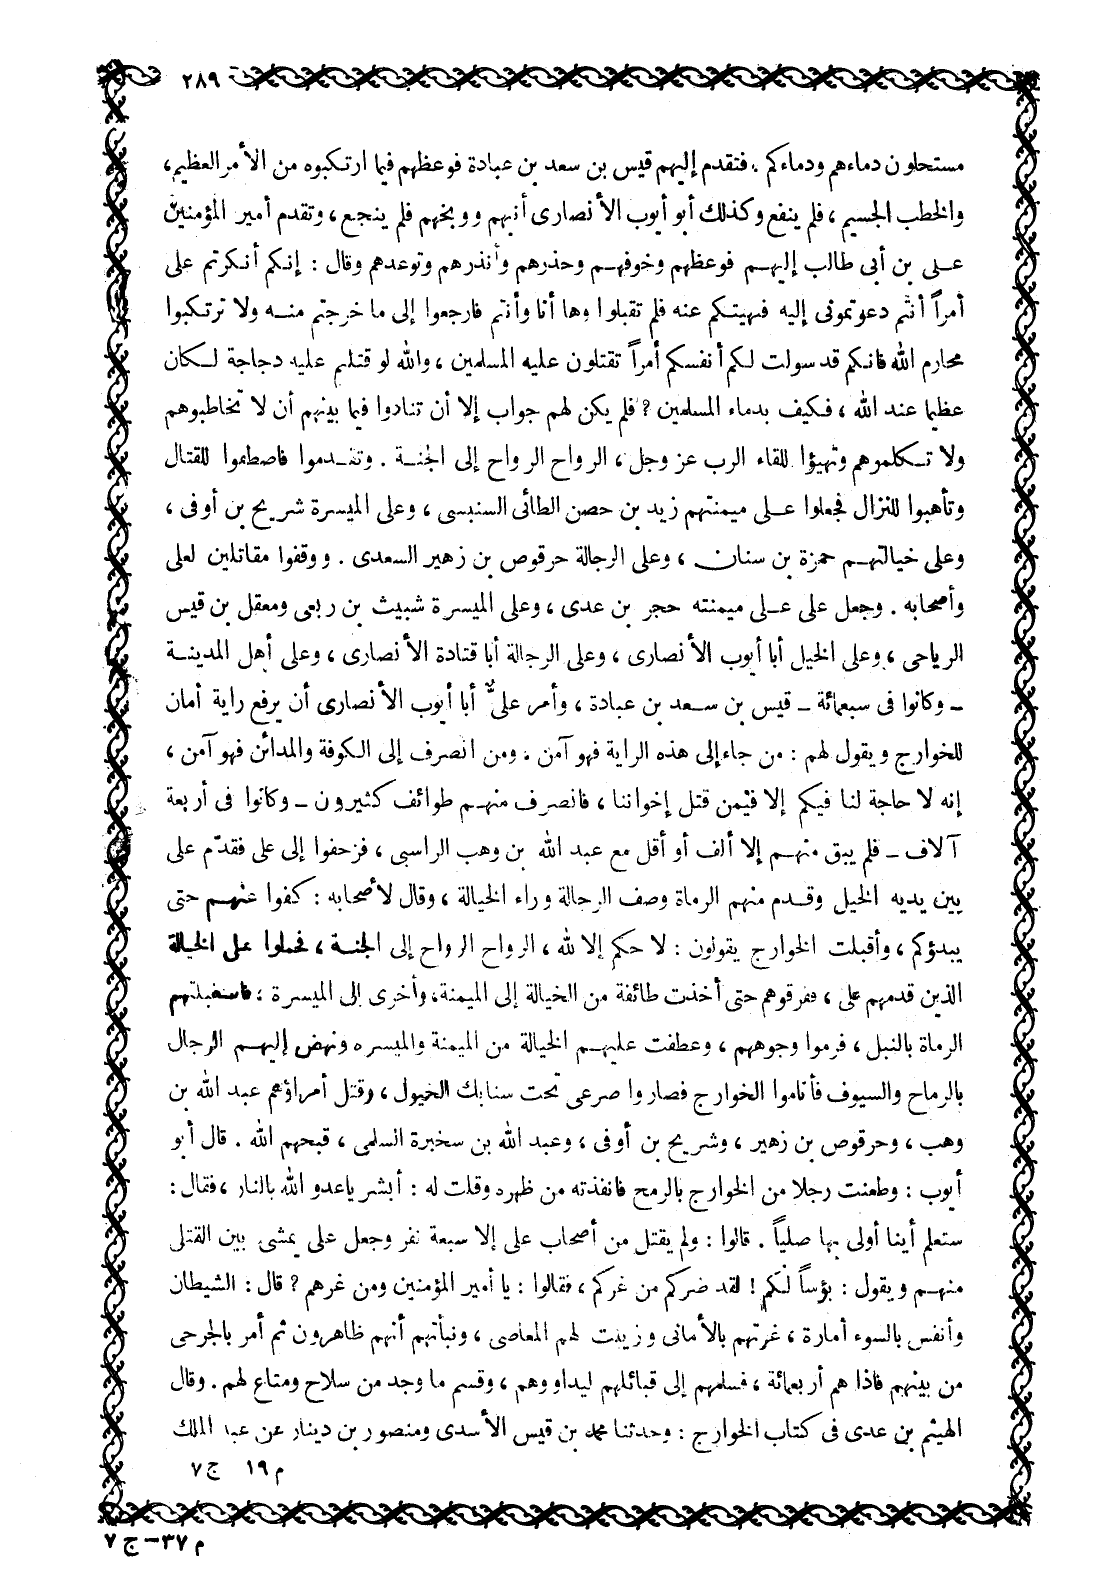 ٢٨٩
مستحلون دماءهم ودماءكم . فتقدم إليهم قيس بن سعد بن عبادة فوعظهم فيما ارتكبوه من الأمر العظيم ،
والخطب الجسيم ، فلم ينفع وكذلك أبو أيوب الأنصارى أنبهم ووبخهم فلم ينجع ، وتقدم أمير المؤمنين
على بن أبى طالب إليهم فوعظهم وخوفهم وحذرهم وأنذرهم وتوعدهم وقال : إنكم أنكرتم على
أمراً أنتم دعوتمونى إليه فنهيتكم عنه فلم تقبلوا وها أنا وأنتم فارجعوا إلى ما خرجتم منه ولا ترتكبوا
محارم الله فانكم قد سولت لكم أنفسكم أمراً تقتلون عليه المسلمين ، والله لو قتلتم عليه دجاجة لكان
عظيما عند الله ، فكيف بدماء المسلمين ؟ فلم يكن لهم جواب إلا أن تنادوا فيما بينهم أن لا تخاطبوهم
ولا تكلموهم وتهيؤا للقاء الرب عز وجل ، الرواح الرواح إلى الجنة . وتقدموا فاصطفوا للقتال
وتأهبوا للنزال فجعلوا على ميمنتهم زيد بن حصن الطائى السنبسى ، وعلى الميسرة شريح بن أوفى ،
وعلى خيالتهم حمزة بن سنان ، وعلى الرجالة حرقوص بن زهير السعدى . ووقفوا مقاتلين لعلى
وأصحابه . وجعل على على ميمنته حجر بن عدى ، وعلى الميسرة شبيث بن ربعى ومعقل بن قيس
الرياحى ، وعلى الخيل أبا أيوب الأنصارى ، وعلى الرجالة أبا قتادة الأنصارى ، وعلى أهل المدينة
ـ وكانوا فى سبعمائة ـ قيس بن سعد بن عبادة ، وأمر علىٌّ أبا أيوب الأنصارى أن يرفع راية أمان
للخوارج ويقول لهم : من جاء إلى هذه الراية فهو آمن . ومن انصرف إلى الكوفة والمدائن فهو آمن ،
إنه لا حاجة لنا فيكم إلا فيمن قتل إخواننا ، فانصرف منهم طوائف كثيرون ـ وكانوا فى أربعة
آلاف ـ فلم يبق منهم إلا ألف أو أقل مع عبد الله بن وهب الراسبى ، فزحفوا إلى على فقدّم على
بين يديه الخيل وقدم منهم الرماة وصف الرجالة وراء الخيالة ، وقال لأصحابه : كفوا عنهم حتى
يبدؤكم ، وأقبلت الخوارج يقولون : لا حكم إلا لله ، الرواح الرواح إلى الجنة ، فحملوا على الخيالة
الذين قدمهم على ، ففرقوهم حتى أخذت طائفة من الخيالة إلى الميمنة ، وأخرى إلى الميسرة ، فاستقبلتهم
الرماة بالنبل ، فرموا وجوههم ، وعطفت عليهم الخيالة من الميمنة والميسره ونهض إليهم الرجال
بالرماح والسيوف فأناموا الخوارج فصاروا صرعى تحت سنابك الخيول ، وقتل أمراؤهم عبد الله بن
وهب ، وحرقوص بن زهير ، وشريح بن أوفى ، وعبد الله بن سخبرة السلمى ، قبحهم الله . قال أبو
أيوب : وطعنت رجلا من الخوارج بالرمح فانفذته من ظهره وقلت له : أبشر ياعدو الله بالنار ، فقال :
ستعلم أينا أولى بها صلياً . قالوا : ولم يقتل من أصحاب على إلا سبعة نفر وجعل على يمشى بين القتلى
منهم ويقول : بؤساً لكم ! لقد ضركم من غركم ، فقالوا : يا أمير المؤمنين ومن غرهم ؟ قال : الشيطان
وأنفس بالسوء أمارة ، غرتهم بالأمانى وزينت لهم المعاصى ، ونبأتهم أنهم ظاهرون ثم أمر بالجرحى
من بينهم فاذا هم أربعمائة ، فسلمهم إلى قبائلهم ليداووهم ، وقسم ما وجد من سلاح ومتاع لهم . وقال
الهيثم بن عدى فى كتاب الخوارج : وحدثنا محمد بن قيس الأسدى ومنصور بن دينار عن عبد الملك
م ١٩ ج ٧
م ٣٧ – ج ٧